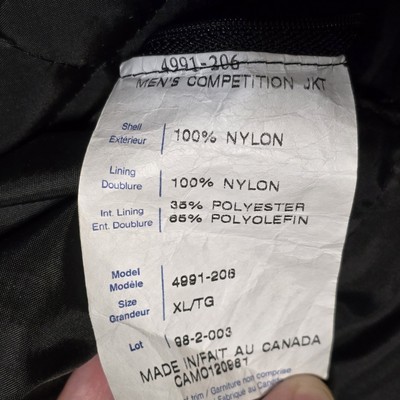 4991-206
MEN'S COMPETITION JKT
Shell
Extérieur
100% NYLON
Lining
Doublure
100% NYLON
Int. Lining
Ent. Doublure
35% POLYESTER
65% POLYOLEFIN
Model
Modèle
4991-206
Size
Grandeur
XL/TG
Lot
98-2-003
MADE IN/FAIT AU CANADA
CAMO120981
of trim / Garniture non comprise
Fabriqué au Canada